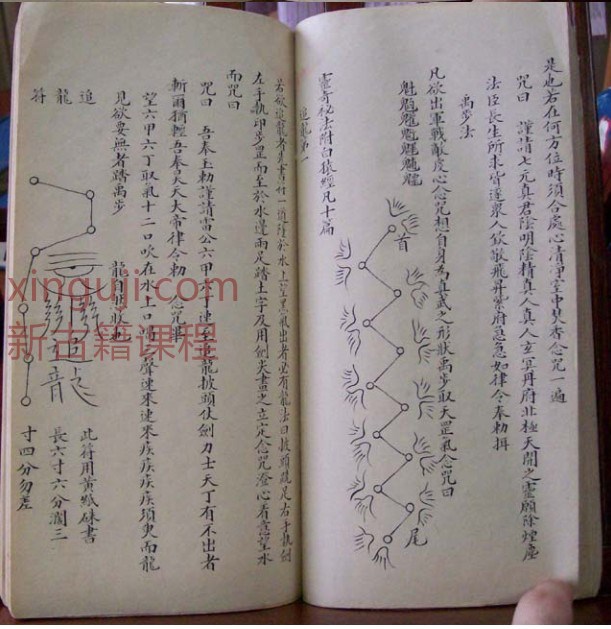 是也若在何方位時須合處心清淨室中焚香念咒一遍
咒曰 謹請七元真君陰明陰精真人真人玄冥丹府北極天開之靈願除煙塵
法臣長生所求皆遂眾人欽敬飛丹紫府急急如律令奉勅揖
禹步法
凡欲出軍戰敵度心念咒想自身為真武之形狀禹步取天罡氣念咒曰
首
尾
靈奇秘法附白猿經凡十篇
追龍第一
若欲追龍者書符一道 於水上 黑氣出者必有龍法曰披頭跣足右手執劍
左手執印步罡而至於水邊兩足踏土字及用劍尖畫之立定念咒澄心看意望水
而咒曰
咒曰 吾奉玉勅謹請雷公六甲六丁速 追龍披頭仗劍力士天丁有不出者
斬爾 吾奉昊天大帝律令勅 念咒畢
望六甲六丁取氣十二口吹在水上口 聲速來速來疾疾疾疾須臾而龍
見欲要無者踏禹步 龍自
追龍符
追龍
此符用黃紙硃書
長六寸六分濶三
寸四分勿差
xinguji.com
新古籍课程